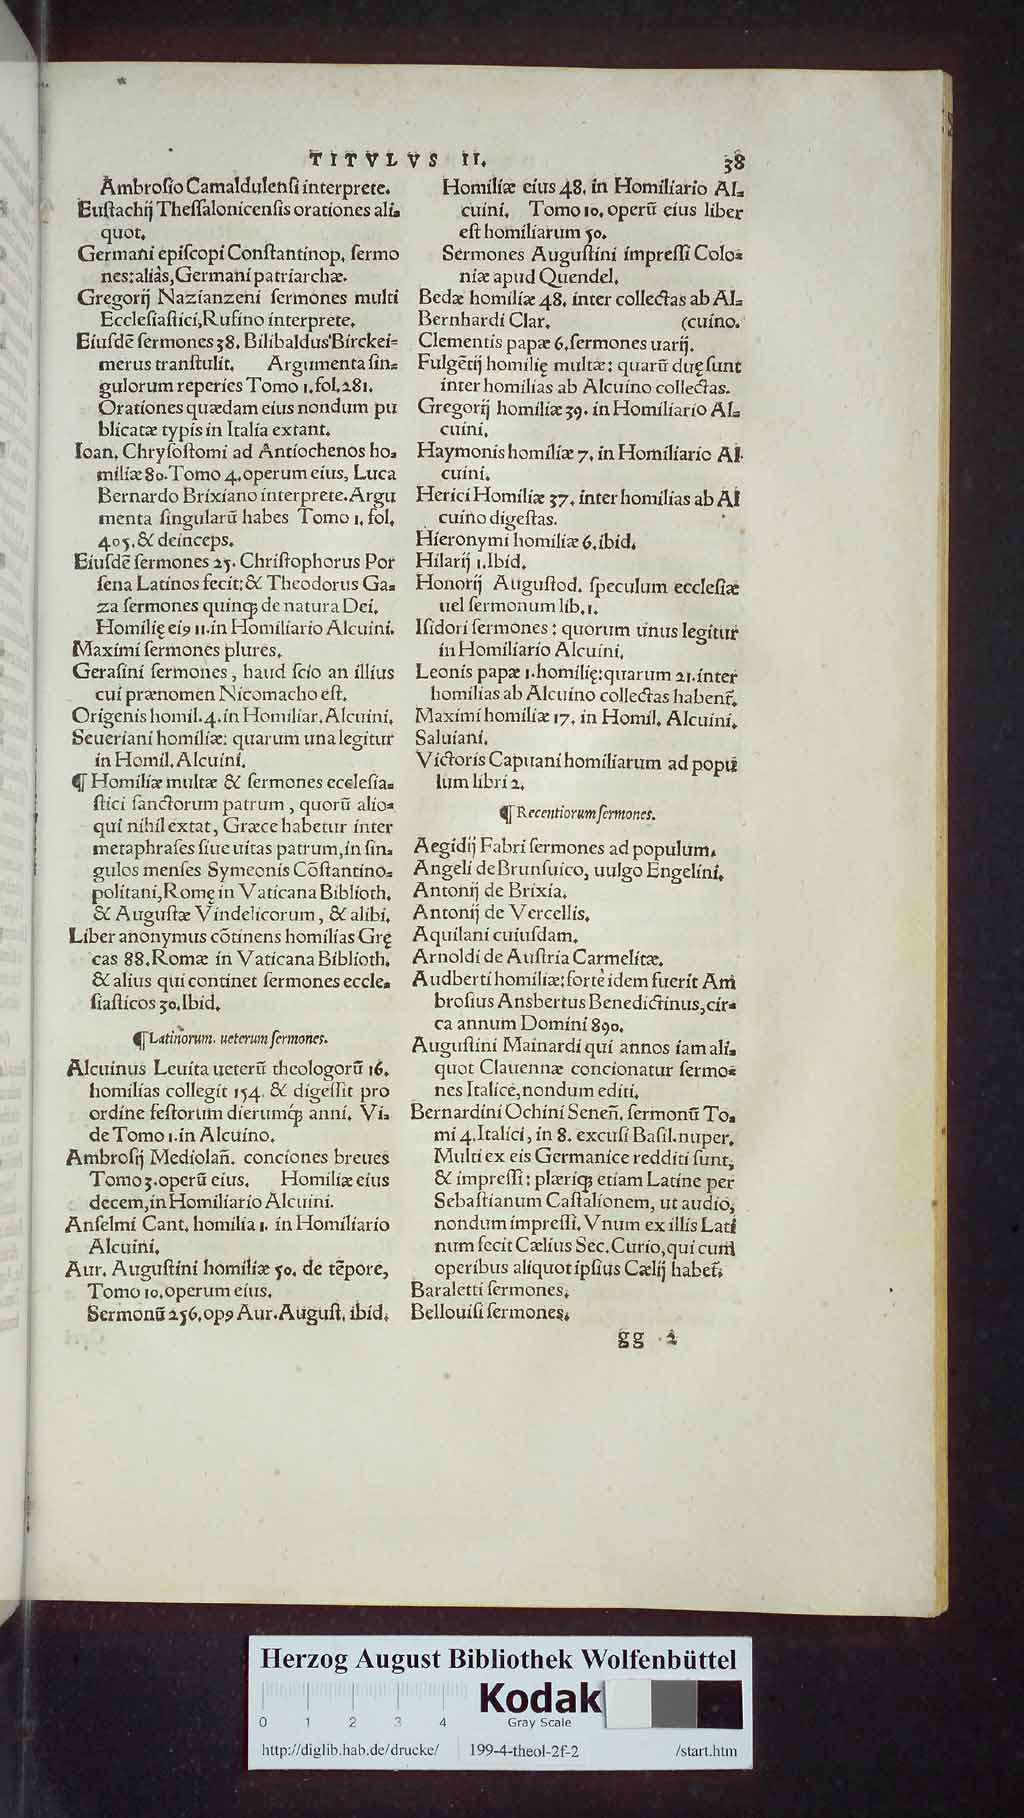 TITVLVS II. 38
Ambroſio Camaldulenſi interprete.
Euſtachij Theſſalonicenſis orationes ali-
quot.
Germani epiſcopi Conſtantinop. ſermo
nes: aliàs, Germani patriarchæ.
Gregorij Nazianzeni ſermones multi
Eccleſiaſtici, Rufino interprete.
Eiuſdẽ ſermones 38. Bilibaldus Birckei=
merus tranſtulit. Argumenta ſin=
gulorum reperies Tomo 1. fol. 281.
Orationes quædam eius nondum pu
blicatæ typis in Italia extant.
Ioan. Chryſoſtomi ad Antiochenos ho-
miliæ 80. Tomo 4. operum eius, Luca
Bernardo Brixiano interprete. Argu
menta ſingularũ habes Tomo 1. fol.
405. & deinceps.
Eiuſdẽ ſermones 25. Chriſtophorus Por
ſena Latinos fecit: & Theodorus Ga-
za ſermones quinq; de natura Dei.
Homilię ei9 11. in Homiliario Alcuini.
Maximi ſermones plures.
Geraſini ſermones, haud ſcio an illius
cui prænomen Nicomacho eſt.
Origenis homil. 4. in Homiliar. Alcuini.
Seueriani homiliæ: quarum una legitur
in Homil. Alcuini.
¶ Homiliæ multæ & ſermones eccleſia-
ſtici ſanctorum patrum, quorũ alio-
qui nihil extat, Græce habetur inter
metaphraſes ſiue uitas patrum, in ſin-
gulos menſes Symeonis Cõſtantino-
politani, Romę in Vaticana Biblioth.
& Auguſtæ Vindelicorum, & alibi.
Liber anonymus cõtinens homilias Grę
cas 88. Romæ in Vaticana Biblioth.
& alius qui continet ſermones eccle-
ſiaſticos 30. Ibid.
¶ Latinorum ueterum ſermones.
Alcuinus Leuita ueterũ theologorũ 16.
homilias collegit 154. & digeſſit pro
ordine feſtorum dierumq; anni. Vi-
de Tomo 1. in Alcuino.
Ambroſij Mediolañ. conciones breues
Tomo 3. operũ eius. Homiliæ eius
decem, in Homiliario Alcuini.
Anſelmi Cant. homilia 1. in Homiliario
Alcuini.
Aur. Auguſtini homiliæ 50. de tẽpore,
Tomo 10. operum eius.
Sermonũ 256. op9 Aur. Auguſt. ibid.
Homiliæ eius 48. in Homiliario Al-
cuini. Tomo 10. operũ eius liber
eſt homiliarum 50.
Sermones Auguſtini impreſſi Colo=
niæ apud Quendel.
Bedæ homiliæ 48. inter collectas ab Al-
Bernhardi Clar. (cuino.
Clementis papæ 6. ſermones uarij.
Fulgẽtij homilię multæ: quarũ duę ſunt
inter homilias ab Alcuino collectas.
Gregorij homiliæ 39. in Homiliario Al-
cuini.
Haymonis homiliæ 7. in Homiliario Al-
cuini.
Herici Homiliæ 37. inter homilias ab Al
cuino digeſtas.
Hieronymi homiliæ 6. ibid.
Hilarij 1. Ibid.
Honorij Auguſtod. ſpeculum eccleſiæ
uel ſermonum lib. 1.
Iſidori ſermones: quorum unus legitur
in Homiliario Alcuini.
Leonis papæ 1. homilię: quarum 21. inter
homilias ab Alcuino collectas habent̃.
Maximi homiliæ 17. in Homil. Alcuini.
Saluiani.
Victoris Capuani homiliarum ad popu
lum libri 2.
¶ Recentiorum ſermones.
Aegidij Fabri ſermones ad populum.
Angeli de Brunſuico, uulgo Engelini.
Antonij de Brixia.
Antonij de Vercellis.
Aquilani cuiuſdam.
Arnoldi de Auſtria Carmelitæ.
Audberti homiliæ: forte idem fuerit Am
broſius Ansbertus Benedictinus, cir-
ca annum Domini 890.
Auguſtini Mainardi qui annos iam ali-
quot Clauennæ concionatur ſermo=
nes Italice, nondum editi.
Bernardini Ochini Seneñ. ſermonũ To-
mi 4. Italici, in 8. excuſi Baſil. nuper.
Multi ex eis Germanice redditi ſunt,
& impreſſi: plæriq; etiam Latine per
Sebaſtianum Caſtalionem, ut audio,
nondum impreſſi. Vnum ex illis Lati
num fecit Cælius Sec. Curio, qui cum
operibus aliquot ipſius Cælij habet̃.
Baraletti ſermones.
Bellouiſi ſermones.
gg 2
Herzog August Bibliothek Wolfenbüttel
Kodak
Gray Scale
0 1 2 3 4
http://diglib.hab.de/drucke/ 199-4-theol-2f-2 /start.htm